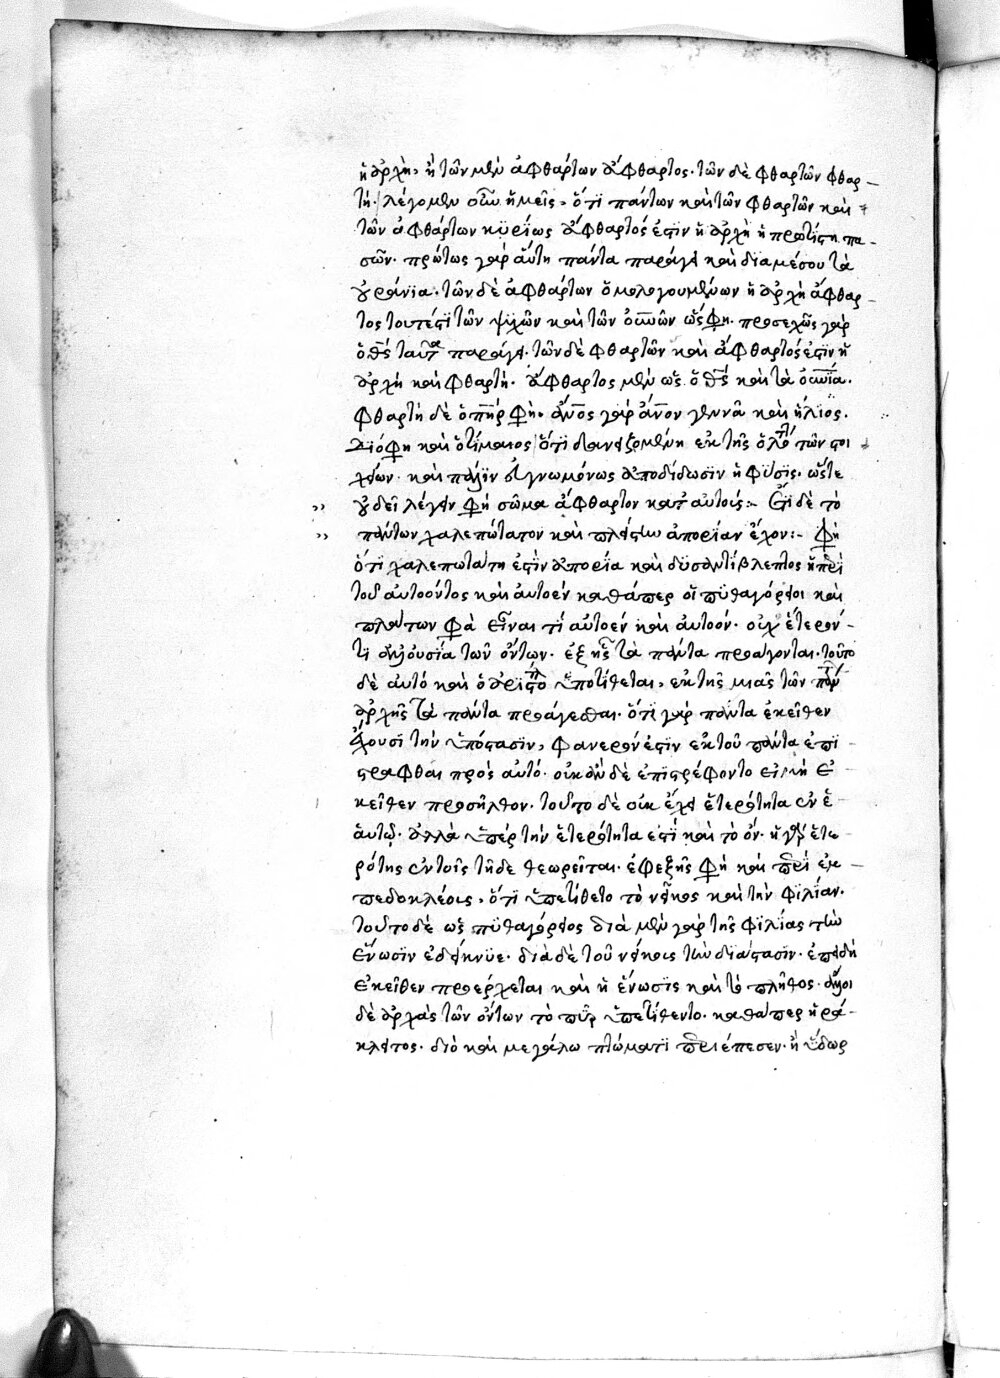 ἢ ἀρχὴ, ἢ τῶν μὲν ἀφθάρτων ἄφθαρτος· τῶν δὲ φθαρτῶν φθαρ
τή· λέγομεν οὖν ἡμεῖς, ὅτι πάντων καὶ τῶν φθαρτῶν καὶ
τῶν ἀφθάρτων κυρίως ἄφθαρτός ἐστιν ἡ ἀρχὴ ἡ πρωτίστη πα
σῶν· πρώτως γὰρ αὕτη πάντα παράγει καὶ δια μέσου τὰ
οὐράνια· τῶν δὲ ἀφθάρτων ὁμολογουμένων ἡ ἀρχὴ ἄφθαρ
τος τουτέστι τῶν ψυχῶν καὶ τῶν οὐνῶν ὥς φη· προσεχῶς γὰρ
ὁ θς ταῦτα παράγει· τῶν δὲ φθαρτῶν καὶ ἄφθαρτός ἐστιν ἡ
ἀρχὴ καὶ φθαρτή· ἄφθαρτος μὲν ὡς ὁ θς καὶ τὰ οὐνια·
φθαρτὴ δὲ ὁ πηρ φη· ανος γὰρ ανον γεννᾶ καὶ ἥλιος·
διό φη καὶ ὁ τίμαιος ὅτι δανειζομένη ἐκ τῆς ὁλό τῶν στοι
χείων· καὶ πάλιν εὐγνωμόνως ἀποδίδωσιν ἡ φύσις· ὥστε
οὐ δεῖ λέγειν φη σῶμα ἄφθαρτον κατ αὐτούς:- Ἔτι δὲ τὸ
πάντων χαλεπώτατον καὶ πλείστην ἀπορίαν ἔχον:- φη
ὅτι χαλεπωτάτη ἐστὶν ἀπορία καὶ δυσαντίβλεπτος ἡ περὶ
τοῦ αὐτοόντος καὶ αὐτοέν καθάπερ οἱ πυθαγόρειοι καὶ
πλάτων φα εἶναι τί αὐτοέν καὶ αὐτοόν· οὐχ ἕτερόν
τι ἀλλ οὐσία τῶν ὄντων· ἐξ ης τὰ πάντα προάγονται· τοῦτο
δὲ αὐτὸ καὶ ὁ ἀριστο ὑποτίθεται, ἐκ τῆς μιᾶς τῶν παν
ἀρχῆς τὰ πάντα προάγεσθαι· ὅτι γὰρ πάντα ἐκεῖθεν
ἔχουσι τὴν ὑπόστασιν, φανερόν ἐστιν ἐκ τοῦ πάντα ἐπι
στραφθαι πρὸς αὐτό· οὐκ ἂν δὲ ἐπιστρέφοντο εἰ μὴ ἐ
κεῖθεν προσῆλθον· τοῦτο δὲ οὐκ ἔχει ἑτερότητα ἐν ἑ
αυτῷ· ἀλλὰ ὑπὲρ τὴν ἑτερότητα ἐστὶ καὶ τὸ ὄν· ἡ γὰρ ἑτε
ρότης ἐν τοῖς τῇδε θεωρεῖται· ἐφεξῆς φη καὶ περὶ ἐμ
πεδοκλέους, ὅτι ὑπετίθετο τὸ νεῖκος καὶ τὴν φιλίαν·
τοῦτο δὲ ὡς πυθαγόρειος διὰ μὲν γὰρ τῆς φιλίας τὴν
ἕνωσιν ἐδείκνυε· διὰ δὲ τοῦ νείκους τὴν διάστασιν· ἐπειδὴ
ἐκεῖθεν προέρχεται καὶ ἡ ἕνωσις καὶ τὸ πλῆθος· ἄλλοι
δὲ ἀρχὰς τῶν ὄντων τὸ πῦρ ὑπετίθεντο· καθάπερ ἡρά
κλειτος· διὸ καὶ μεγάλω πτώματι περιέπεσεν· ἢ ὕδωρ